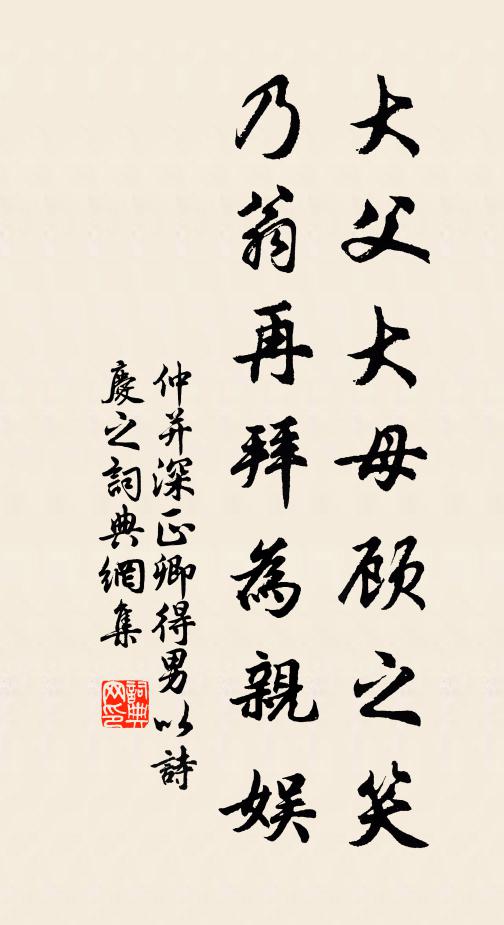 大父大母顾之笑
乃翁再拜為親娱
仲并深正卿得男以詩
慶之詞典網集
詞典网印